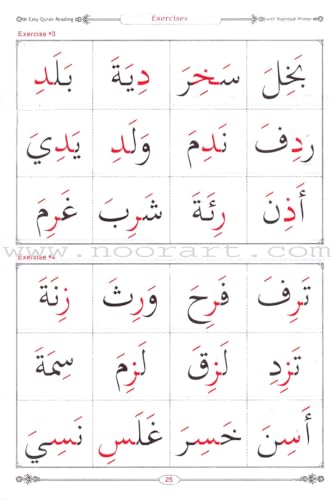 Easy Quran Reading Exercises with Baghdadi Primer
Exercise #3
بَخِلَ سَخِرَ دِيَةَ بَلَدِ
رَدِفَ نَدِمَ وَلَدِ يَدِيَ
أَذِنَ رِئَةَ شَرِبَ غَرِمَ
www.noorart.com
Exercise #4
تَرِفَ فَرِحَ وَرِثَ زِنَةَ
تَزِدِ لَزِقَ لَزِمَ سِمَةَ
أَسِنَ خَسِرَ غَلَسِ نَسِيَ
25